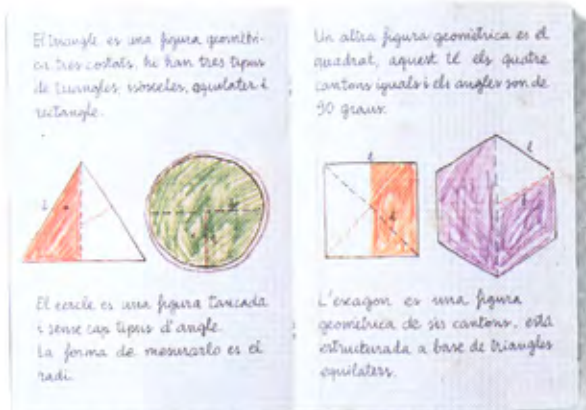 El triangle es una figura geomètri-
ca tres costats, hi han tres tipus
de triangles isòsceles, equilater i
rectangle.
El cercle es una figura tancada
i sense cap tipus d'angle.
La forma de mesurarlo es el
radi.
Un altra figura geomètrica es el
quadrat, aquest té els quatre
cantons iguals i els angles son de
90 graus.
l
l
L'exagon es una figura
geomètrica de sis cantons, està
estructurada a base de triangles
equilaters.